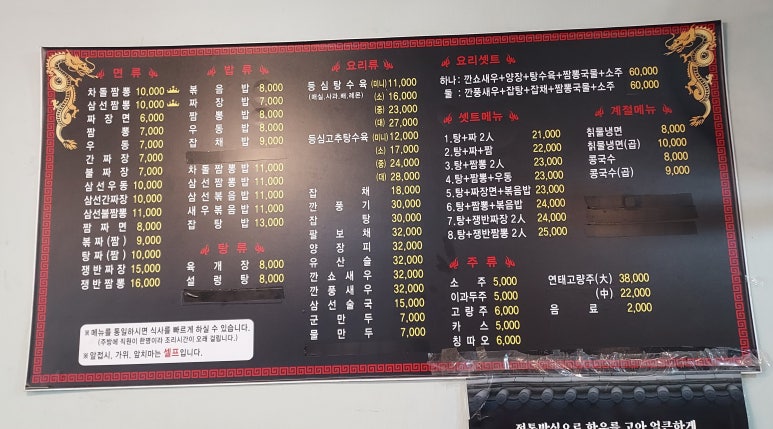 면 류
차돌짬뽕 10,000
삼선짬뽕 10,000
짜장면 6,000
짬뽕 7,000
우동 7,000
간짜장 7,000
불짜장 7,000
삼선우동 10,000
삼선간짜장 10,000
삼선불짬뽕 11,000
짬짜면 8,000
볶짜(짬) 9,000
탕짜(짬) 10,000
쟁반짜장 15,000
쟁반짬뽕 16,000
※메뉴를 통일하시면 식사를 빠르게 하실 수 있습니다.
(주방에 직원이 한명이라 조리시간이 오래 걸립니다.)
※앞접시, 가위, 앞치마는 셀프입니다.
밥 류
볶음밥 8,000
짜장밥 7,000
짬뽕밥 8,000
우동밥 8,000
잡채밥 9,000
차돌짬뽕밥 11,000
삼선짬뽕밥 11,000
삼선볶음밥 11,000
새우볶음밥 11,000
잡탕밥 13,000
탕 류
육개장 8,000
설렁탕 8,000
요리류
등심탕수육 (미니) 11,000
(소) 16,000
(중) 23,000
(대) 27,000
등심고추탕수육 (미니) 12,000
(소) 17,000
(중) 24,000
(대) 28,000
잡채 18,000
깐풍기 30,000
잡탕 30,000
팔보채 32,000
양장피 32,000
유산슬 32,000
깐쇼새우 32,000
깐풍새우 32,000
삼선술국 15,000
군만두 7,000
물만두 7,000
요리셋트
하나 : 깐쇼새우+양장+탕수육+짬뽕국물+소주 60,000
둘 : 깐풍새우+잡탕+잡채+짬뽕국물+소주 60,000
셋트메뉴
1.탕+짜 2인 21,000
2.탕+짜+짬 22,000
3.탕+짬뽕 2인 23,000
4.탕+짬뽕+우동 23,000
5.탕+짜장면+볶음밥 23,000
6.탕+짬뽕+볶음밥 24,000
7.탕+쟁반짜장 2인 24,000
8.탕+쟁반짬뽕 2인 25,000
계절메뉴
칡물냉면 8,000
칡물냉면(곱) 10,000
콩국수 8,000
콩국수(곱) 9,000
주 류
소주 5,000
이과두주 5,000
고량주 6,000
카스 5,000
칭따오 6,000
연태고량주(大) 38,000
(中) 22,000
음료 2,000